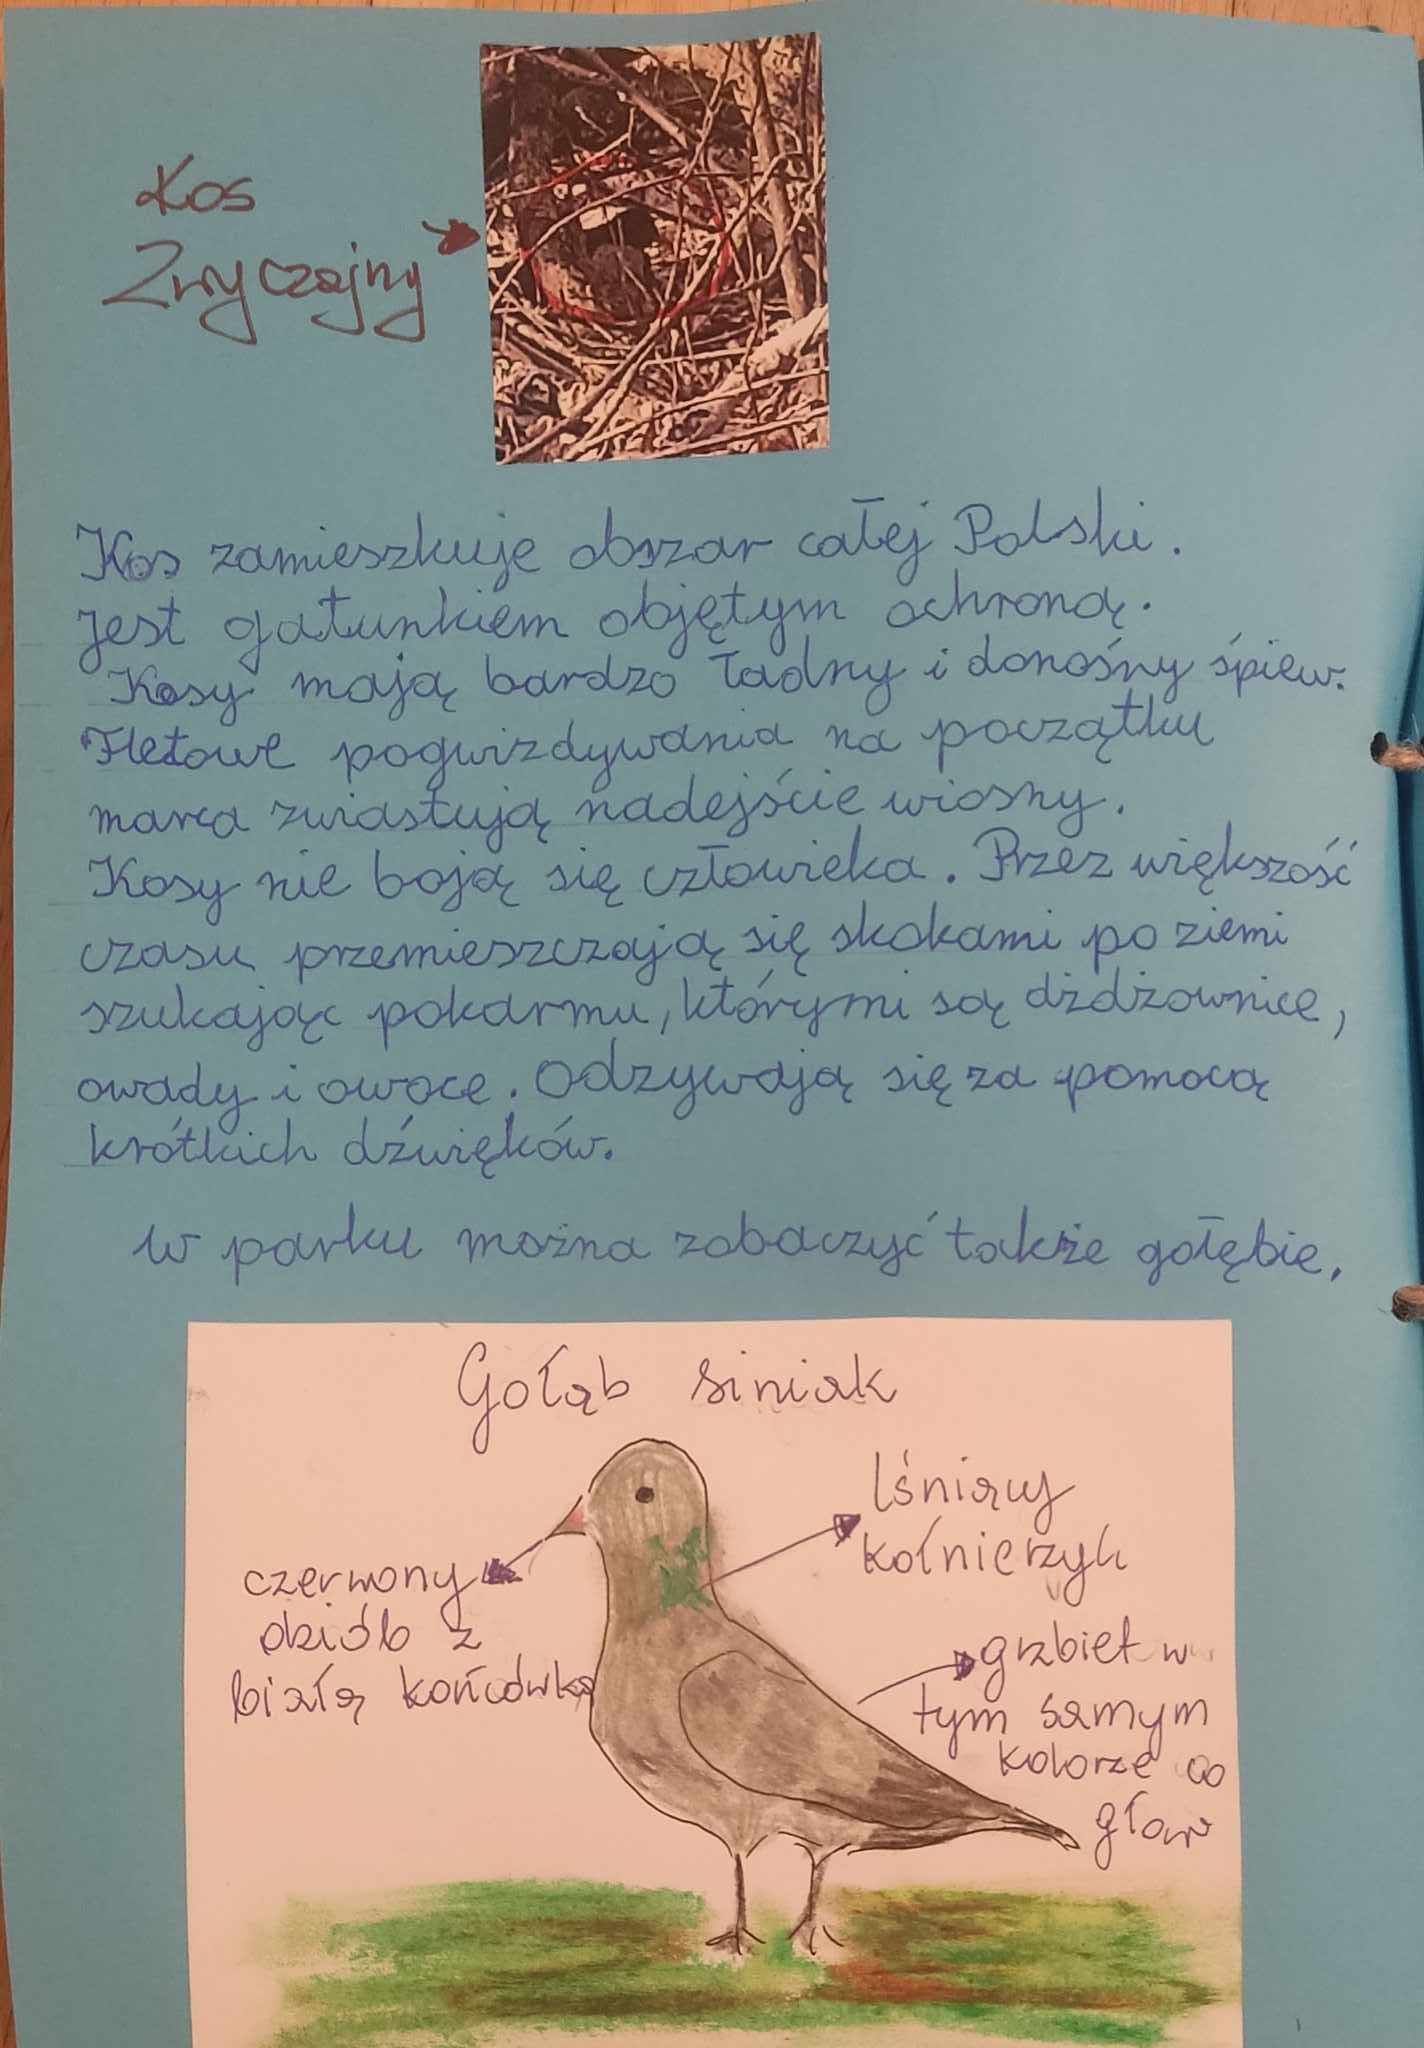 Kos
Zwyczajny
Kos zamieszkuje obszar całej Polski.
Jest gatunkiem objętym ochroną.
Kosy mają bardzo ładny i donośny śpiew.
Fletowe pogwizdywania na początku
marca zwiastują nadejście wiosny.
Kosy nie boją się człowieka. Przez większość
czasu przemieszczają się skokami po ziemi
szukając pokarmu, którymi są dżdżownice,
owady i owoce. Odzywają się za pomocą
krótkich dźwięków.
W parku można zobaczyć także gołębie.
Gołąb siniak
lśniący
kołnierzyk
czerwony
dziób z
białą końcówką
grzbiet w
tym samym
kolorze co
głowa